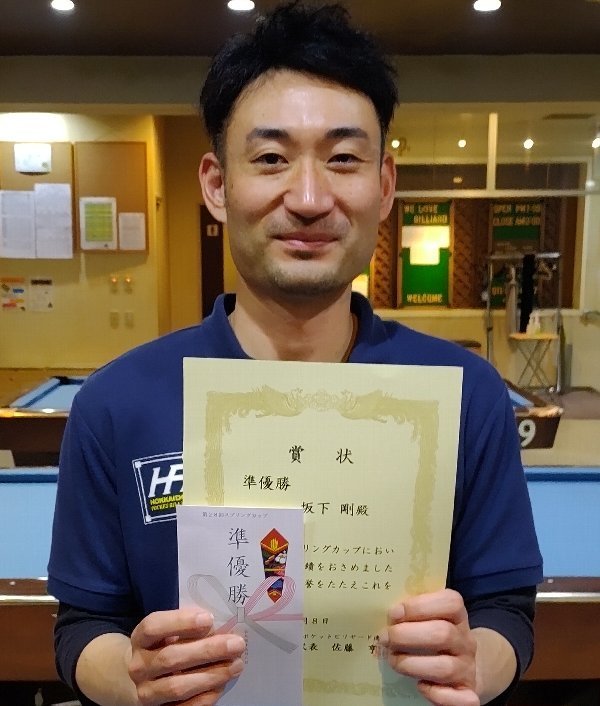 WE LOVE
BILLIARD
WELCOME
OPEN PM
CLOSE AM
9
HOKKAIDO
賞状
準優勝
坂下 剛殿
リングカップにおい
績をおさめました
誉をたたえこれを
月8日
ポケットビリヤード
代表 佐藤
第28回スプリングカップ
準優勝